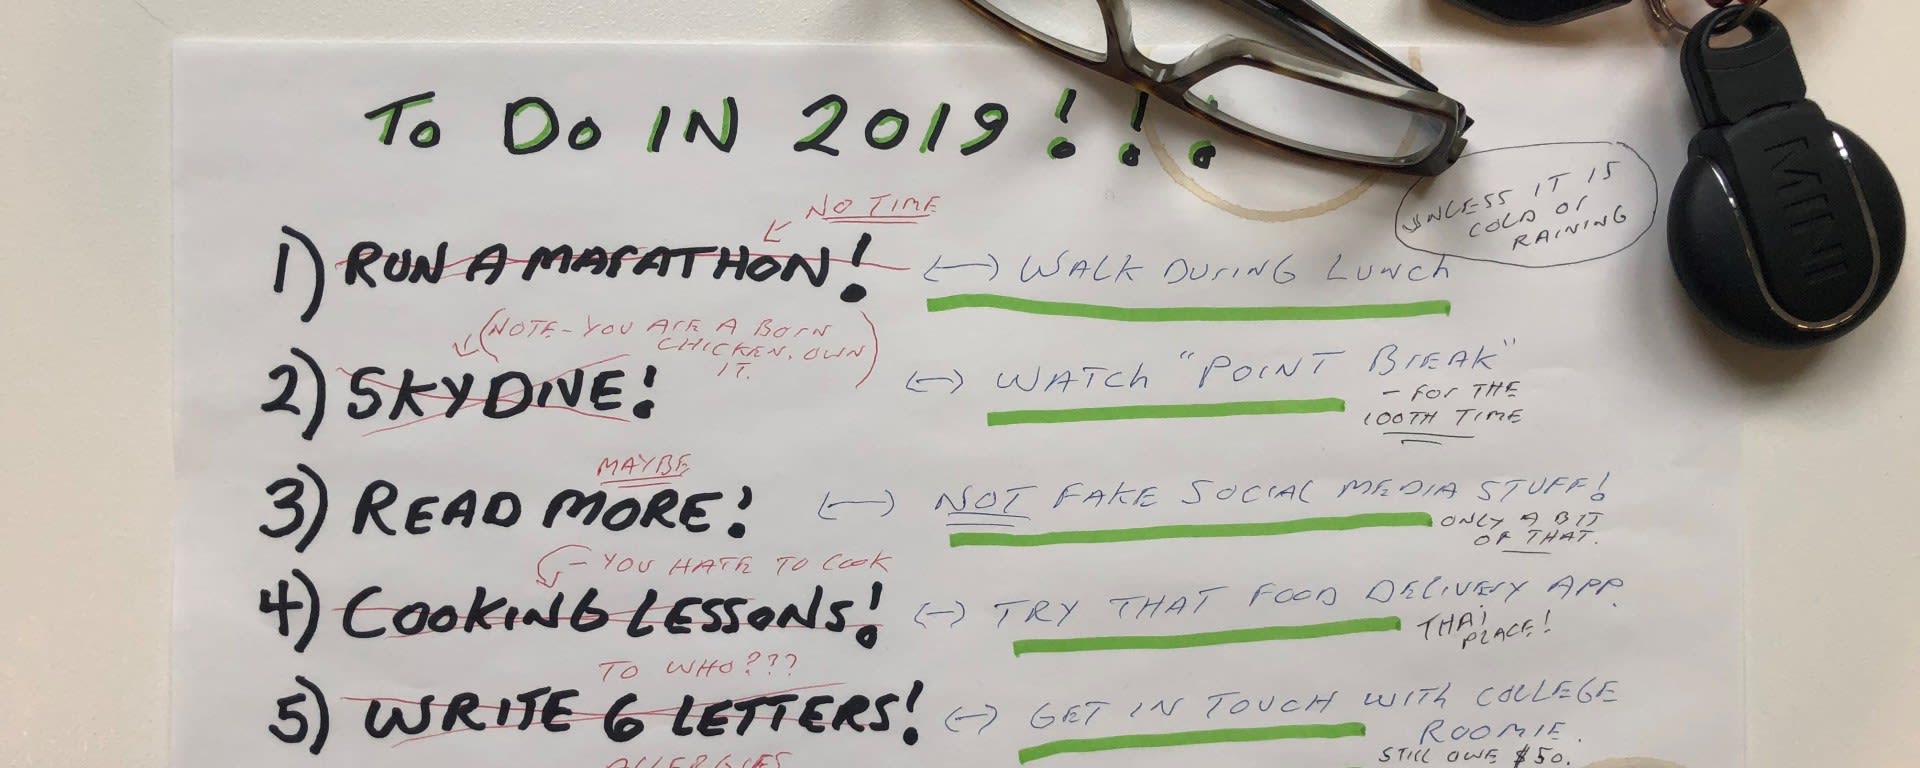 TO DO IN 2019!!!
NO TIME
UNLESS IT IS
COLD OR
RAINING
1) RUN A MARATHON! <-> WALK DURING LUNCH
(NOTE - YOU ARE A BORN
CHICKEN. OWN
IT.)
2) SKYDIVE! <-> WATCH "POINT BREAK"
- FOR THE
100TH TIME
MAYBE
3) READ MORE! <-> NOT FAKE SOCIAL MEDIA STUFF!
ONLY A BIT
OF THAT.
- YOU HATE TO COOK
4) COOKING LESSONS! <-> TRY THAT FOOD DELIVERY APP.
THAI
PLACE!
TO WHO???
5) WRITE 6 LETTERS! <-> GET IN TOUCH WITH COLLEGE
ROOMIE.
STILL OWE $50.
ALLERGIES
MINI